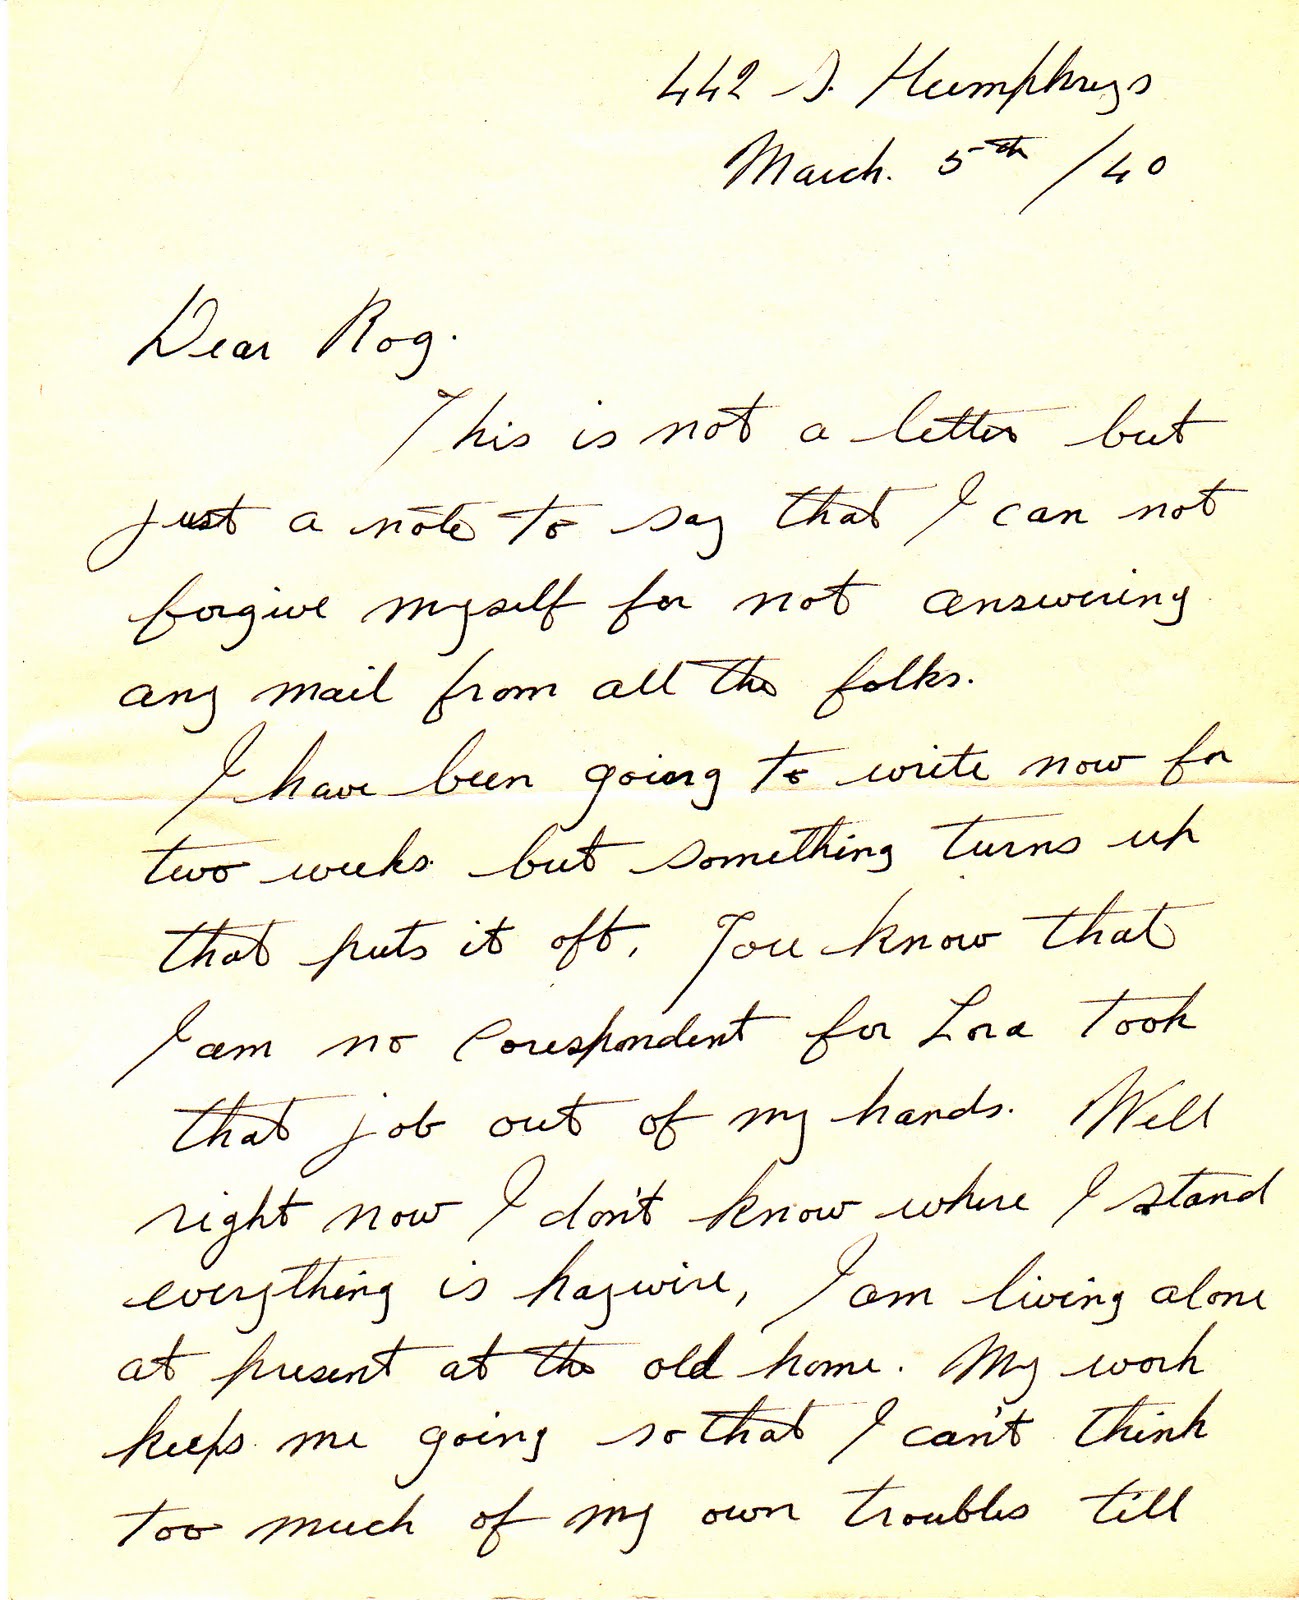 442 S. Humphrys
March. 5th /40
Dear Rog.
This is not a letter but
just a note to say that I can not
forgive myself for not answering
any mail from all the folks.
I have been going to write now for
two weeks but something turns up
that puts it oft, You know that
I am no Corespondent for Lora took
that job out of my hands. Well
right now I don't know where I stand
everything is haywire, I am living alone
at present at the old home. My work
keeps me going so that I can't think
too much of my own troubles till